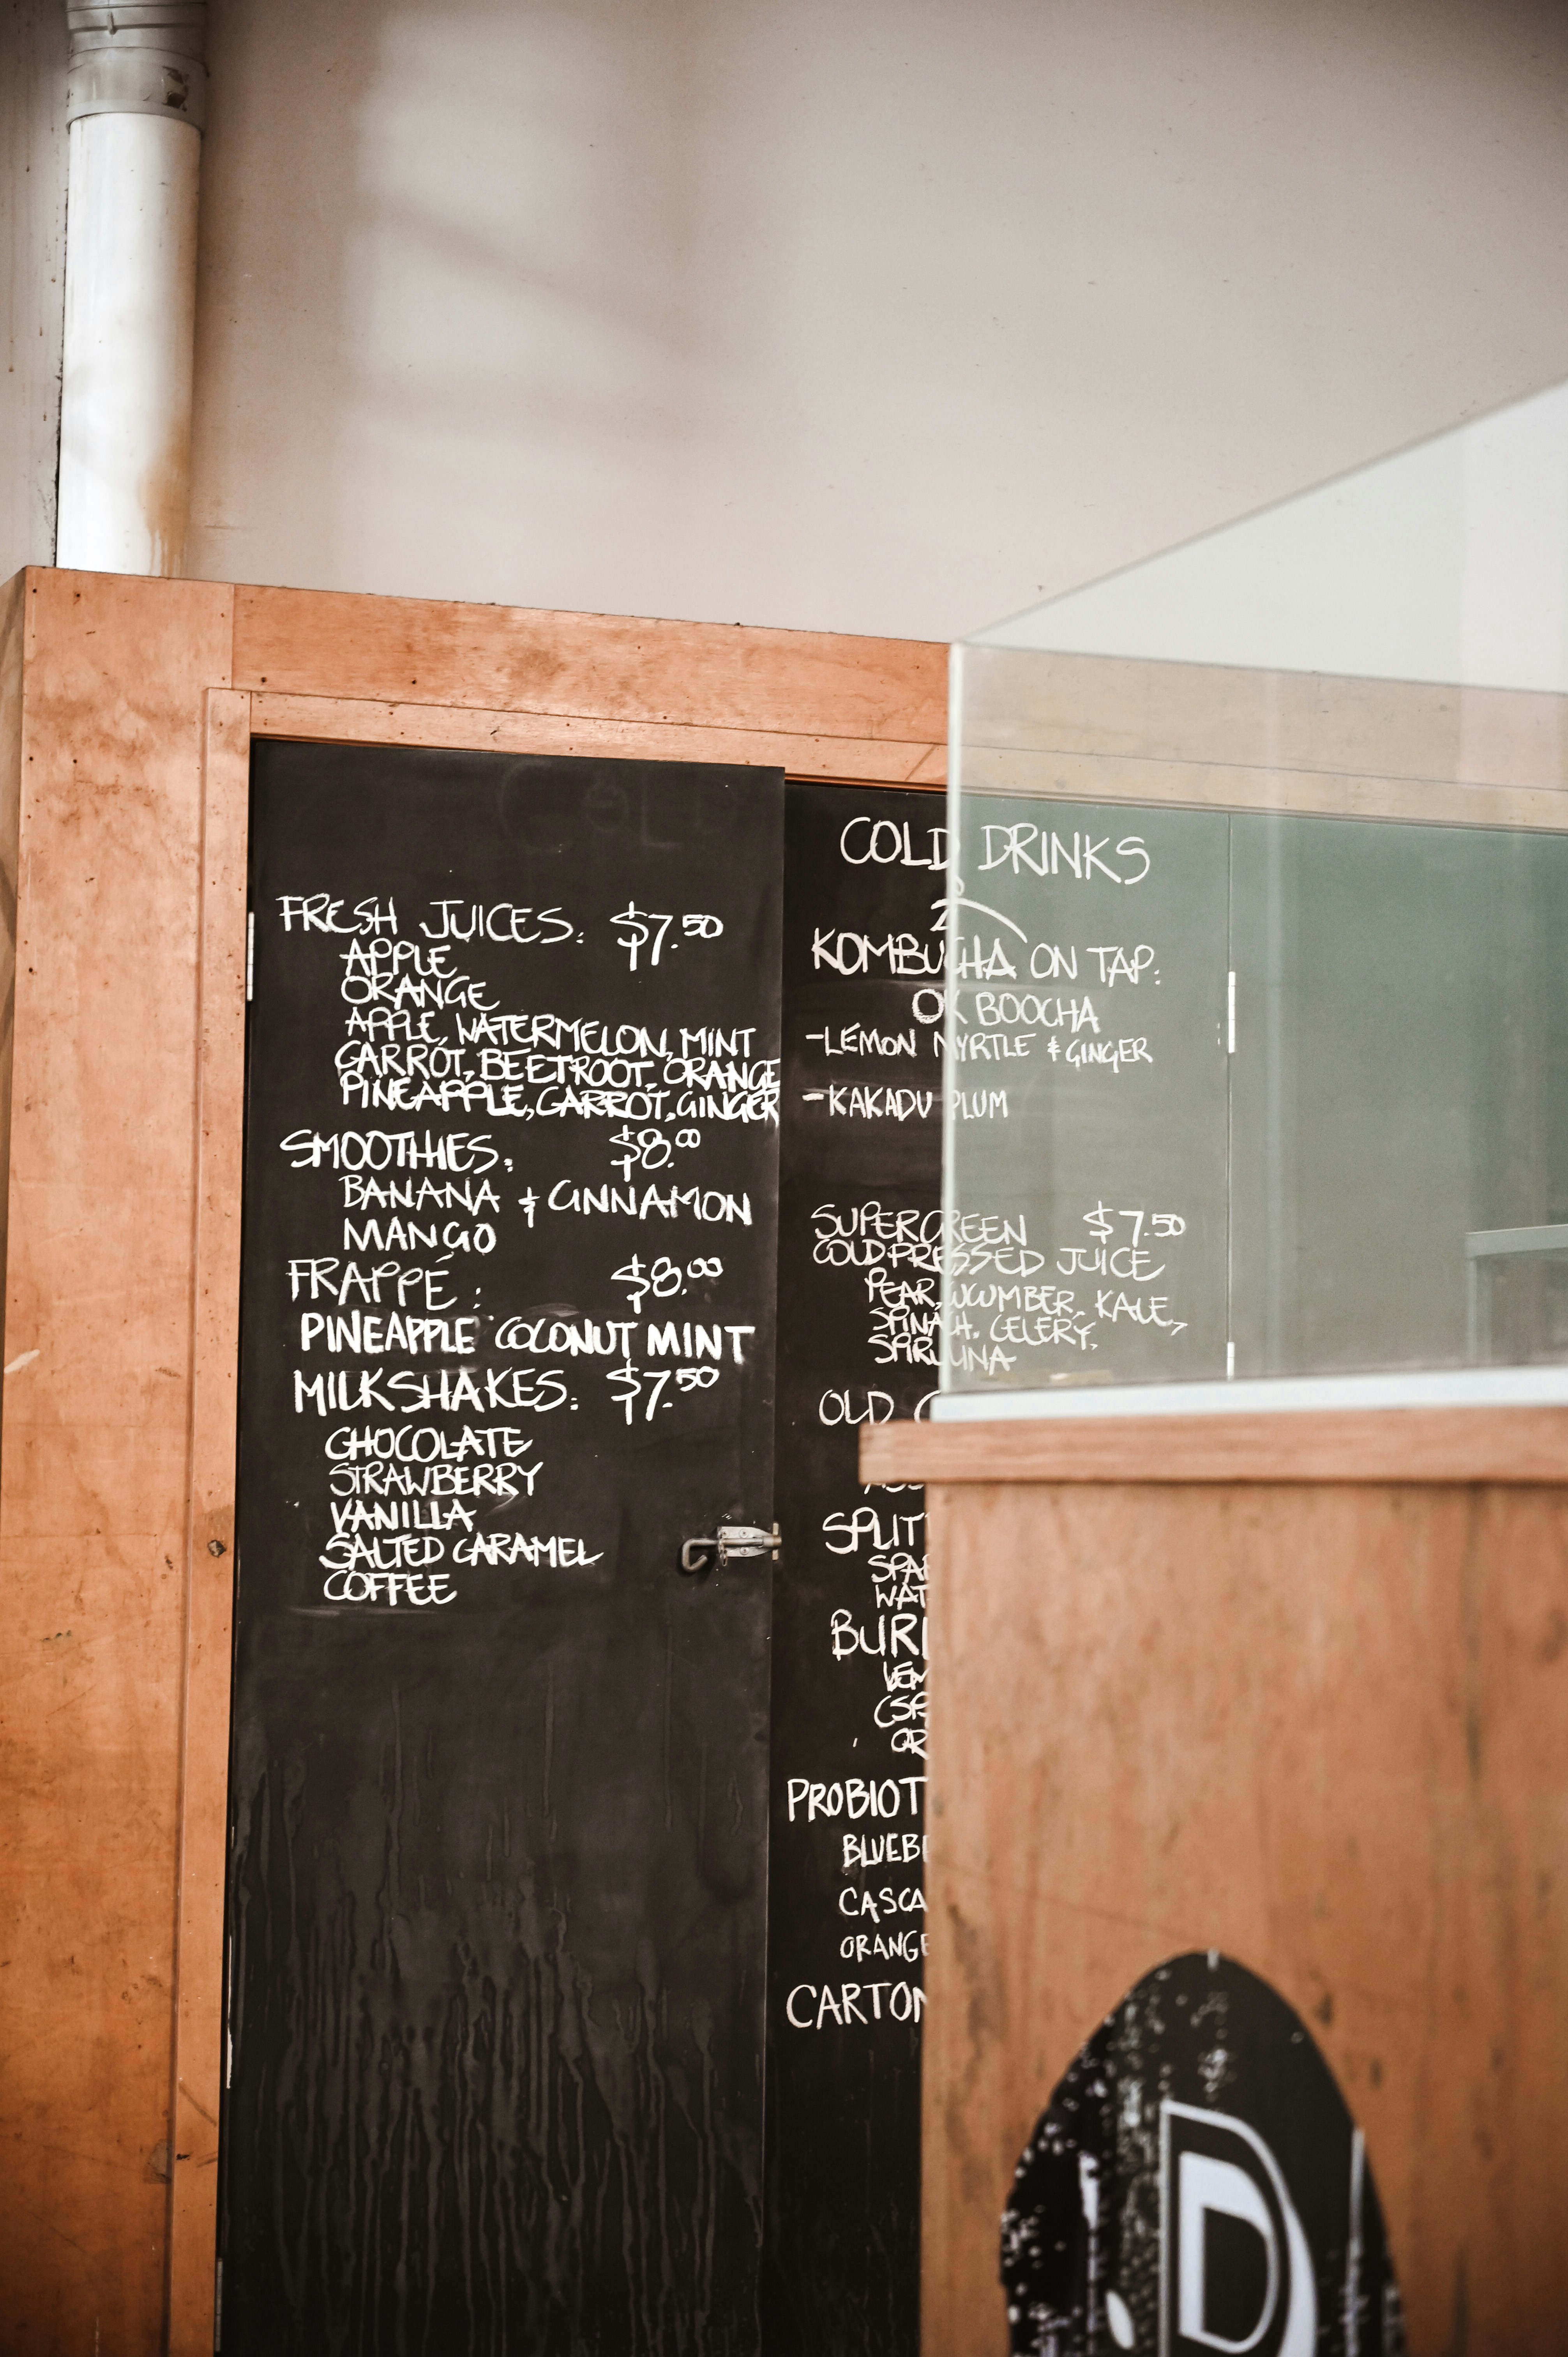 FRESH JUICES: $7.50
APPLE
ORANGE
APPLE, WATERMELON, MINT
CARROT, BEETROOT, ORANGE
PINEAPPLE, CARROT, GINGER
SMOOTHIES: $8.00
BANANA & CINNAMON
MANGO
FRAPPÉ: $8.00
PINEAPPLE COCONUT MINT
MILKSHAKES: $7.50
CHOCOLATE
STRAWBERRY
VANILLA
SALTED CARAMEL
COFFEE
COLD DRINKS
KOMBUCHA ON TAP:
OK BOOCHA
-LEMON MYRTLE & GINGER
-KAKADU PLUM
SUPERGREEN $7.50
COLDPRESSED JUICE
PEAR, CUCUMBER, KALE,
SPINACH, CELERY,
SPIRULINA
OLD
SPLIT
SPA
WAT
BUR
LEM
OR
PROBIOT
BLUEB
CASCA
ORANGE
CARTON
D